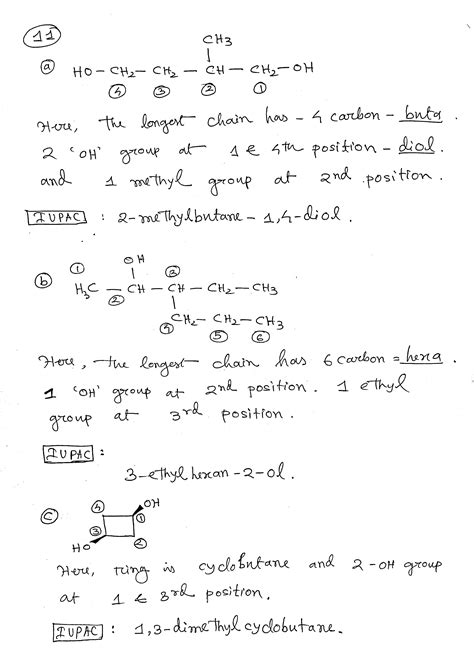 11
CH3
a HO-CH2-CH2-CH-CH2-OH
4 3 2 1
Here, the longest chain has - 4 carbon - buta.
2 'OH' group at 1 & 4th position - diol.
and 1 methyl group at 2nd position.
IUPAC : 2-methylbutane-1,4-diol.
OH
1 3
b H3C-CH-CH-CH2-CH3
2
CH2-CH2-CH3
4 5 6
Here, the longest chain has 6 carbon = hexa.
1 'OH' group at 2nd position. 1 ethyl
group at 3rd position.
IUPAC :
3-ethylhexan-2-ol.
c 4 OH
1
3
HO 2
Here, ring is cyclobutane and 2-OH group
at 1 & 3rd position.
IUPAC : 1,3-dimethylcyclobutane.